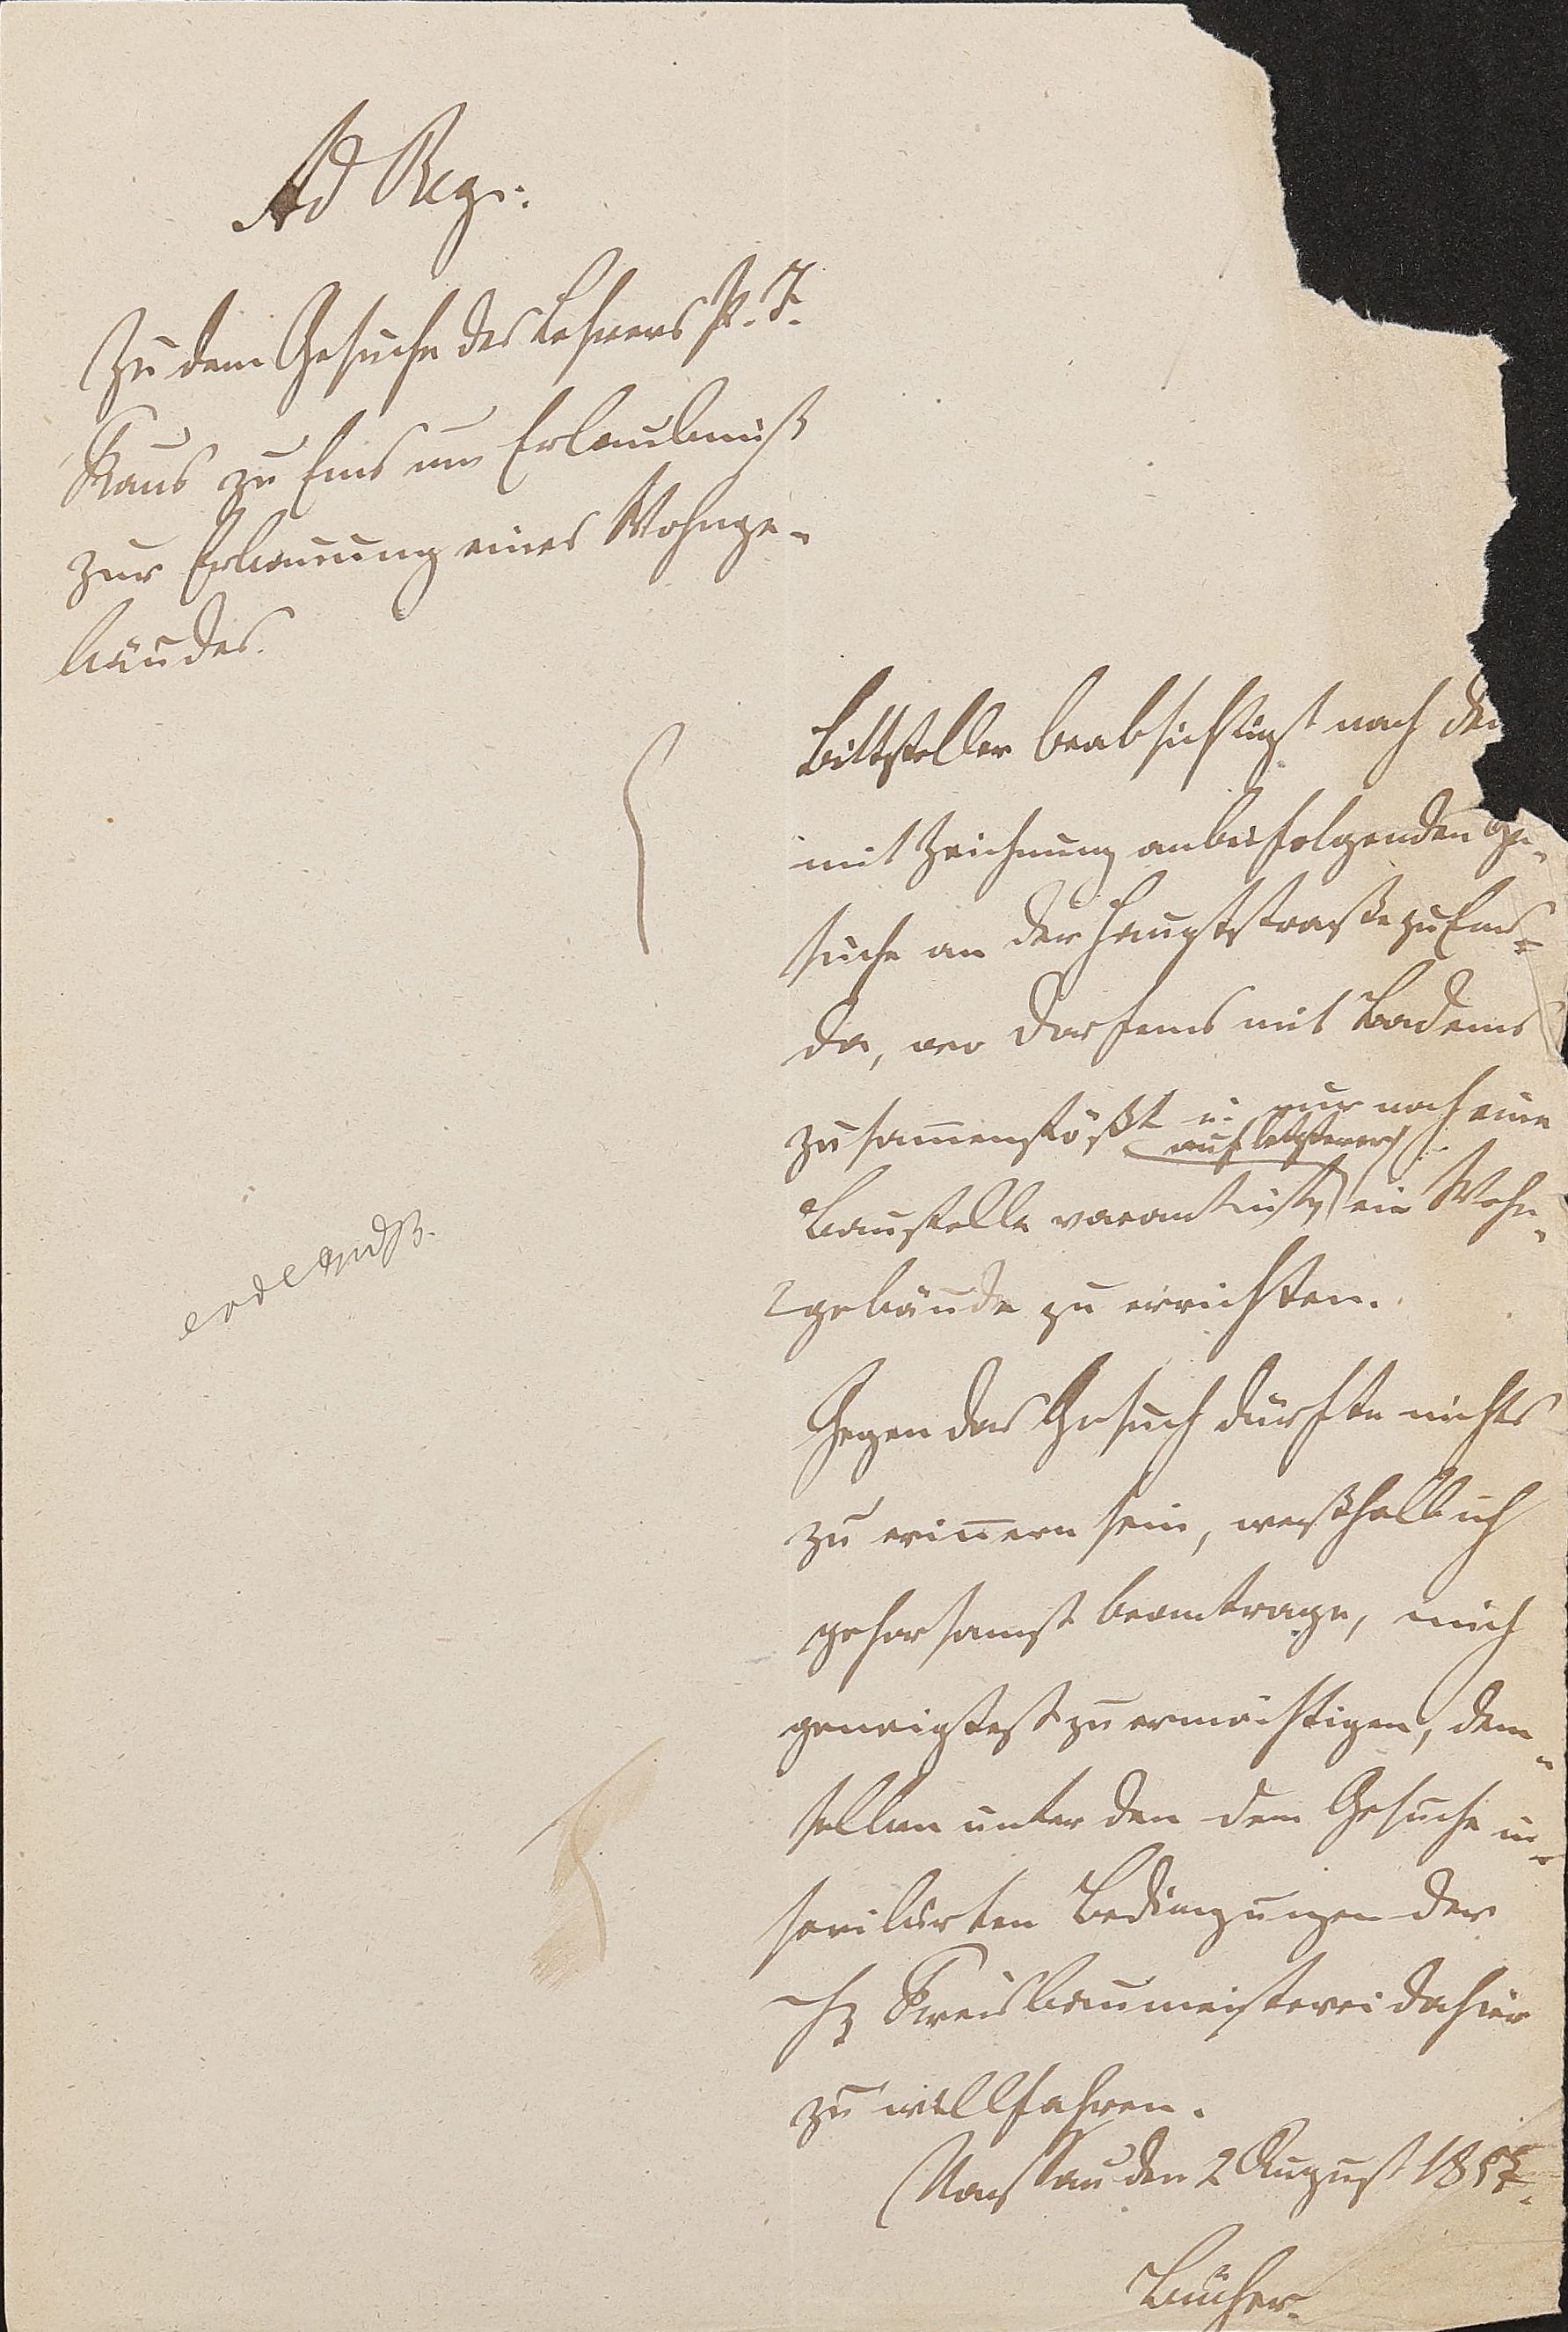 Ad Reg:
Zu dem Gesuche des Lehrers P. J.
Kaus zu Ems um Erlaubniß
zur Erbauung eines Wohnge-
bäudes.
Bittsteller beabsichtigt nach dem
mit Zeichnung anbeifolgenden Ge-
suche an der Hauptstraße zu Ems
da, wo Dorfems mit Badems
zusam̄enstößt u. nur noch eine
auf letzterer
Baustelle vorant ein Wohn-
gebäude zu errichten.
Gegen das Gesuch dürfte nichts
zu erin̄ern sein, weßhalb ich
gehorsamst beantrage, mich
geneigtest zu ermächtigen, dem-
selben unter den dem Gesuche in-
seribirten Bedingungen der
Hz Kreisbaumeisterei dahier
zu willfahren.
Nassau den 2 August 1857.
Bücher.